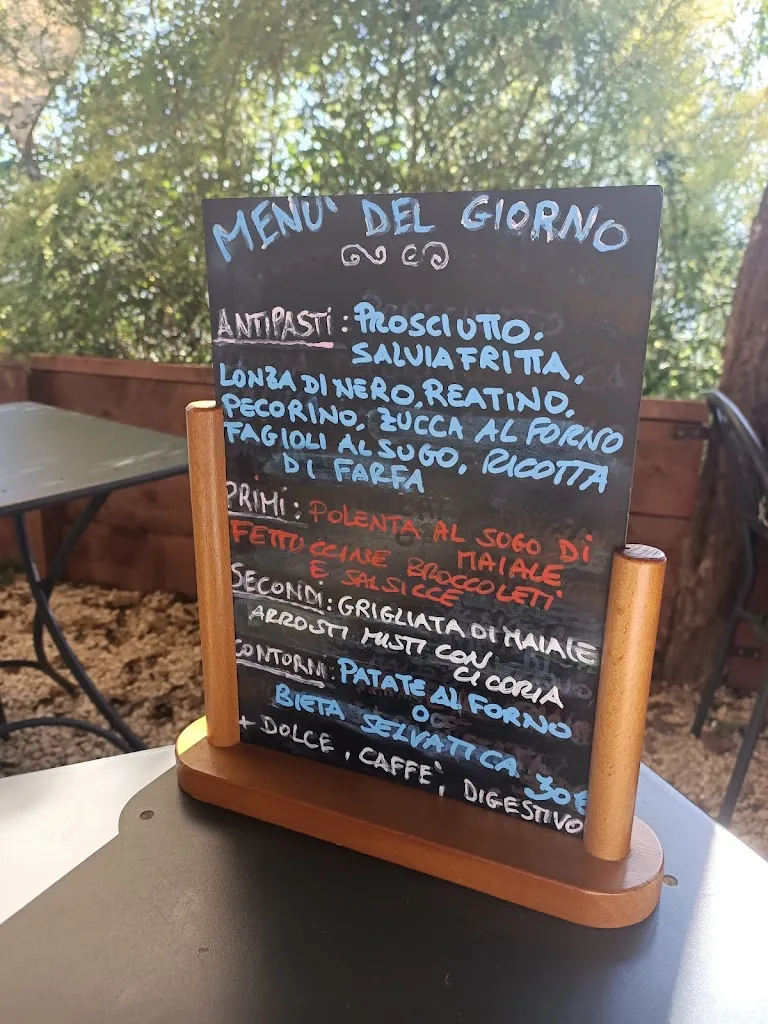 MENU' DEL GIORNO
ANTIPASTI: PROSCIUTTO.
SALVIA FRITTA.
LONZA DI NERO, REATINO.
PECORINO, ZUCCA AL FORNO
FAGIOLI AL SUGO, RICOTTA
DI FARFA
PRIMI: POLENTA AL SUGO DI
MAIALE
FETTUCCINE BROCCOLETI
E SALSICCE
SECONDI: GRIGLIATA DI MAIALE
ARROSTI MISTI CON
CICORIA
CONTORNI: PATATE AL FORNO
O
BIETA SELVATICA 30€
+ DOLCE, CAFFE', DIGESTIVO